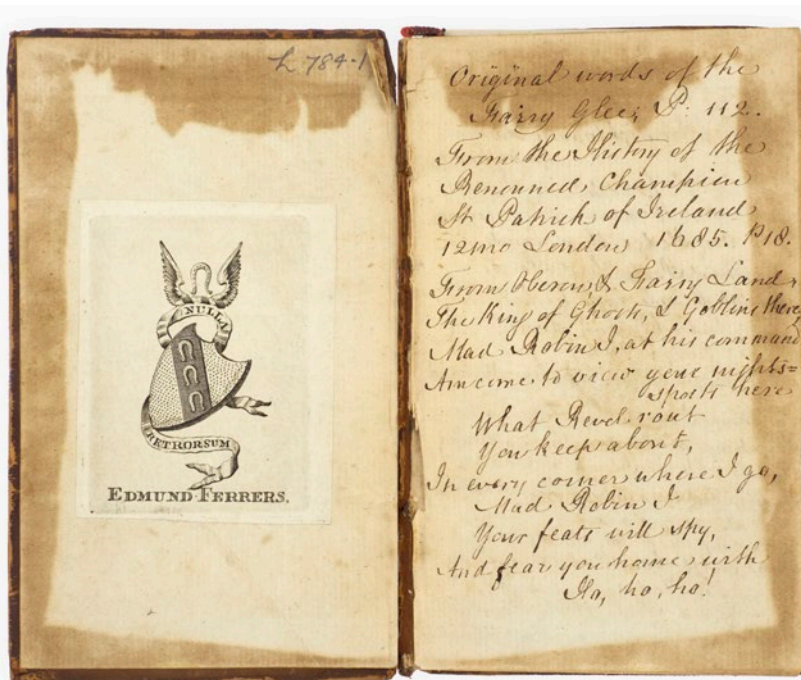 L 784-1
NULLA
RETRORSUM
EDMUND FERRERS.
Original words of the
Fairy Glee; P. 112.
From the History of the
Renowned Champion
St Patrick of Ireland
12mo London 1685. P18.
From Oberon, I Fairy Land,
The King of Ghosts, & Goblins there,
Mad Robin I, at his command
Am come to view your nights=
sports here
What Revel rout
You keep about,
In every corner where I go,
Mad Robin I
Your feats will spy,
And fear you home with
Ho, ho, ho!